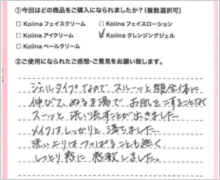 ①今回はどの商品をご購入になられましたか?(複数選択可)
□ Koiina フェイスクリーム □ Koiina フェイスローション
□ Koiina アイクリーム ☑ Koiina クレンジングジェル
□ Koiina ベールクリーム
②ご使用になられたご感想・ご意見をお願い致します。
ジェルタイプなので、スルーッと顔全体に
伸びて、ぬるま湯で、お肌をこすることなく
スーッと、洗い流す事が出来ました
メイクはしっかりと落ちました。
洗い上りはつっぱることも無く
しっとり感に感動しました。